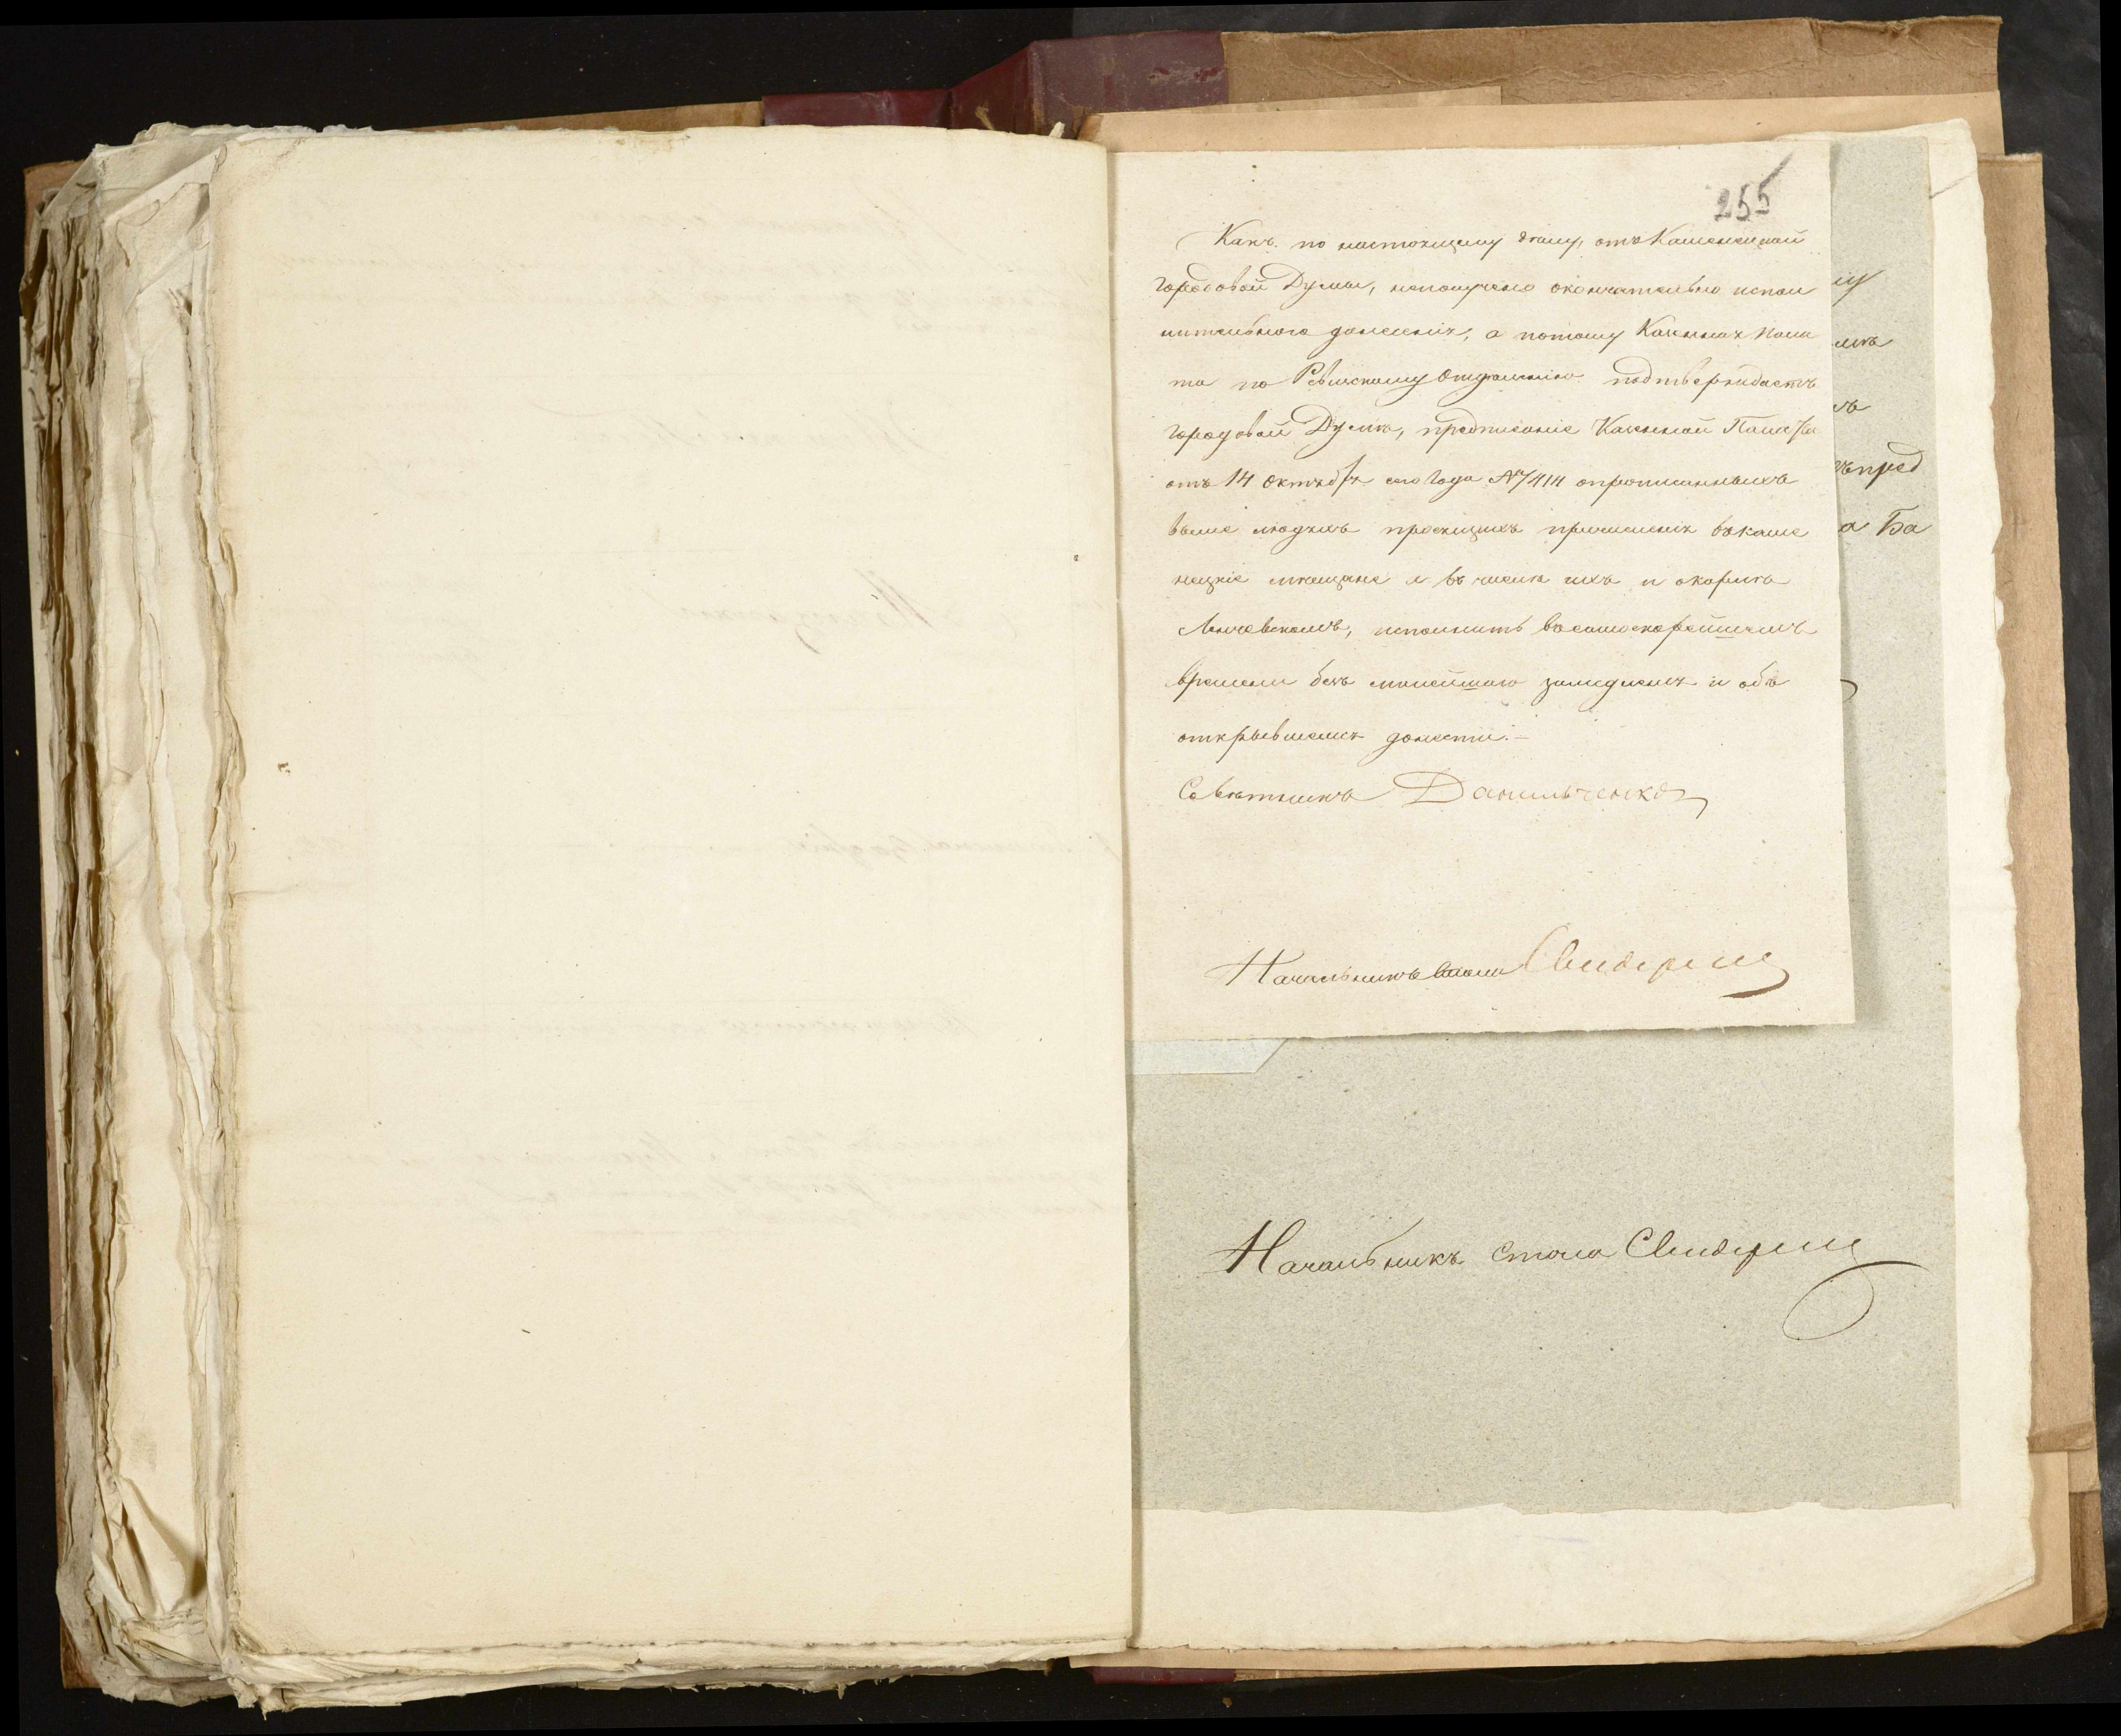 255
Какъ по настоящему дѣлу, отъ Каменецкой
городовой Думы, неполучено окончательно испол
нительнаго донесенія, а потому Казенная Пала
та по Ревизскому Отдѣленію подтверждаетъ
городовой Думѣ, предписаніе Казенной Палаты
отъ 14 Октября сего Года № 7414 опрописанныхъ
выше людяхъ просящихъ причисленія въ каме
нецкіе мѣщане и въ числѣ ихъ и
исполнить въсамоскорейшемъ
времени безъ малейшаго замедленія и объ
открывшемся донести.—
Совѣтникъ Данильченко
Начальникъ Стола
му
ъпред
а Ба
Начальникъ Стола